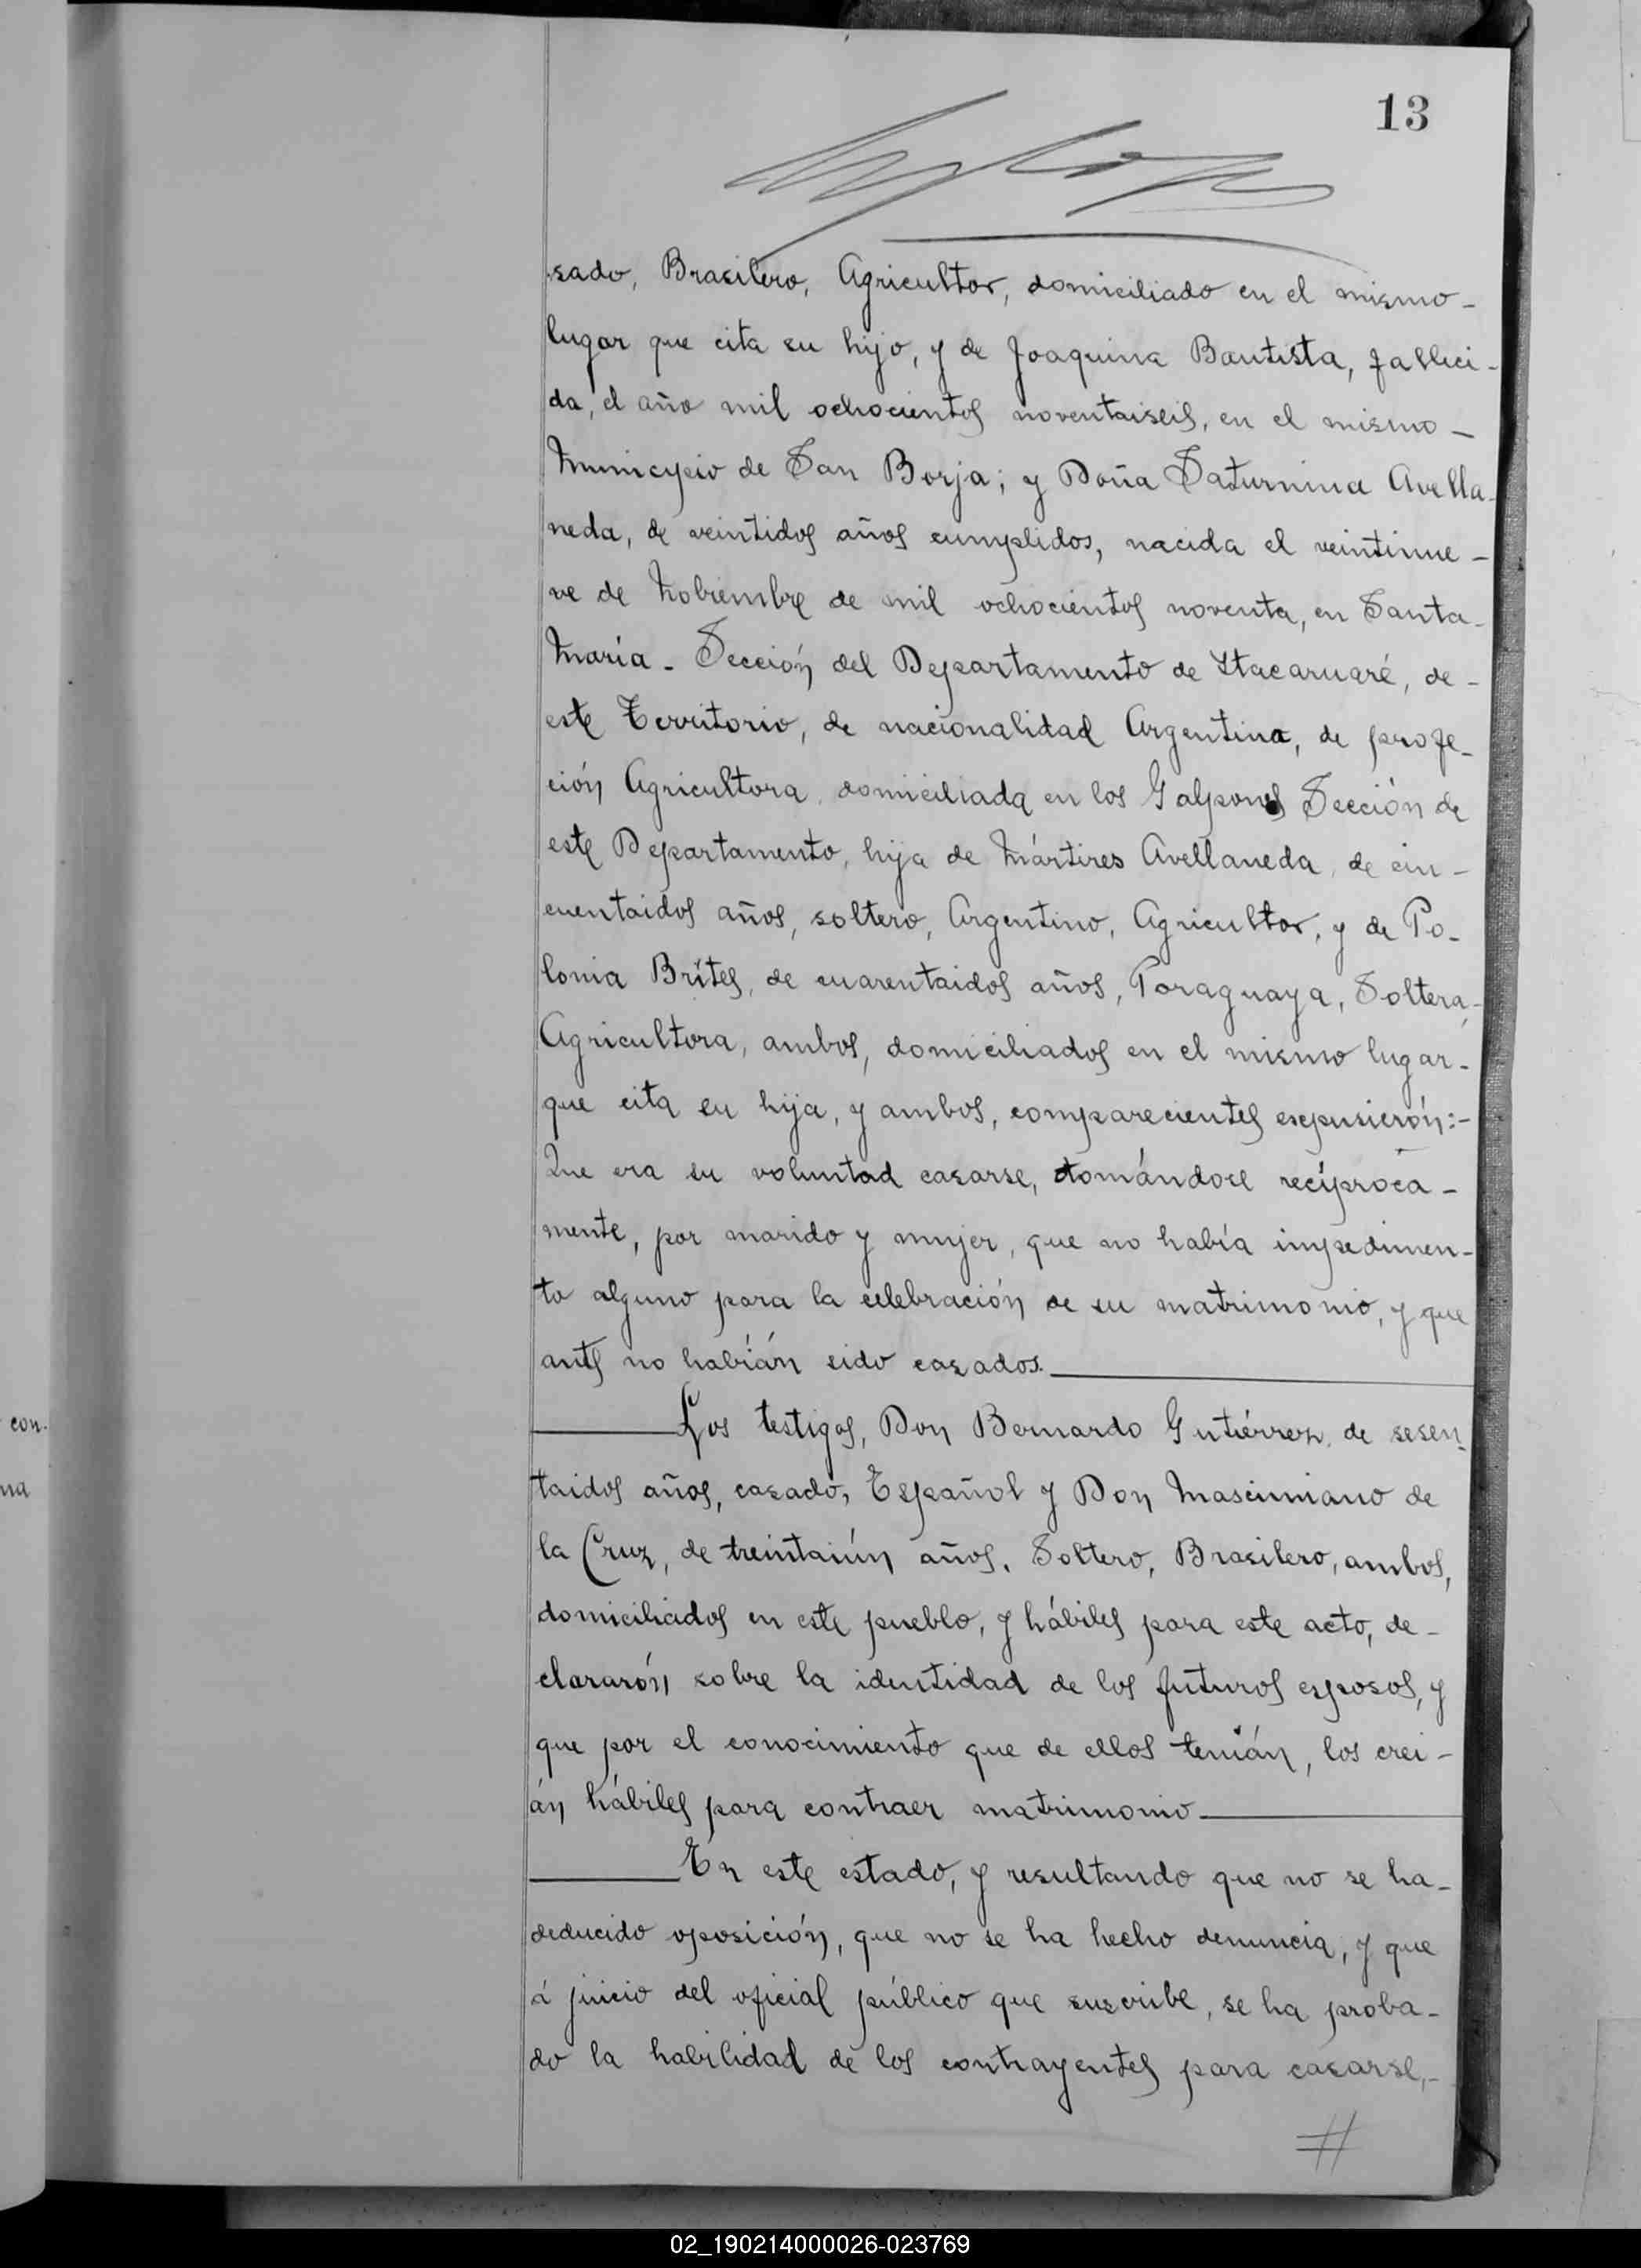 13
sado, Brasilero, Agricultor, domiciliado en el mismo-
lugar que cita su hijo, y de Joaquina Bautista, falleci-
da, el año mil ochocientos noventaiseis, en el mismo-
Municipio de San Borja; y Doña Saturnina Avella-
neda, de veintidos años cumplidos, nacida el veintinue-
ve de Nobiembre de mil ochocientos noventa, en Santa-
María - Sección del Departamento de Itacaruaré, de-
este Territorio, de nacionalidad Argentina, de profe-
ción Agricultora, domiciliada en los Galpones Sección de
este Departamento, hija de Mártires Avellaneda, de cin-
cuentaidos años, soltero, Argentino, Agricultor, y de Po-
lonia Brítes, de cuarentaidos años, Paraguaya, Soltera,-
Agricultora, ambos, domiciliados en el mismo lugar-
que cita su hija, y ambos, comparecientes espusierón:-
Que era su voluntad casarse, tomándose recíproca-
mente, por marido y mujer, que no había impedimen-
to alguno para la celebración de su matrimonio, y que
antes no habián sido casados.
Los testigos, Don Bernardo Gutiérrez, de sesen-
taidos años, casado, Español y Don Mascimiano de
la Cruz, de treintaiún años, Soltero, Brasilero, ambos,
domiciliados en este pueblo, y hábiles para este acto, de-
clararón sobre la identidad de los futuros esposos, y
que por el conocimiento que de ellos tenián, los crei-
án hábiles para contraer matrimonio
En este estado, y resultando que no se ha-
deducido oposición, que no se ha hecho denuncia, y que
á juicio del oficial público que suscribe, se ha proba-
do la habilidad de los contrayentes para casarse,-
#
con-
na
02_190214000026-023769